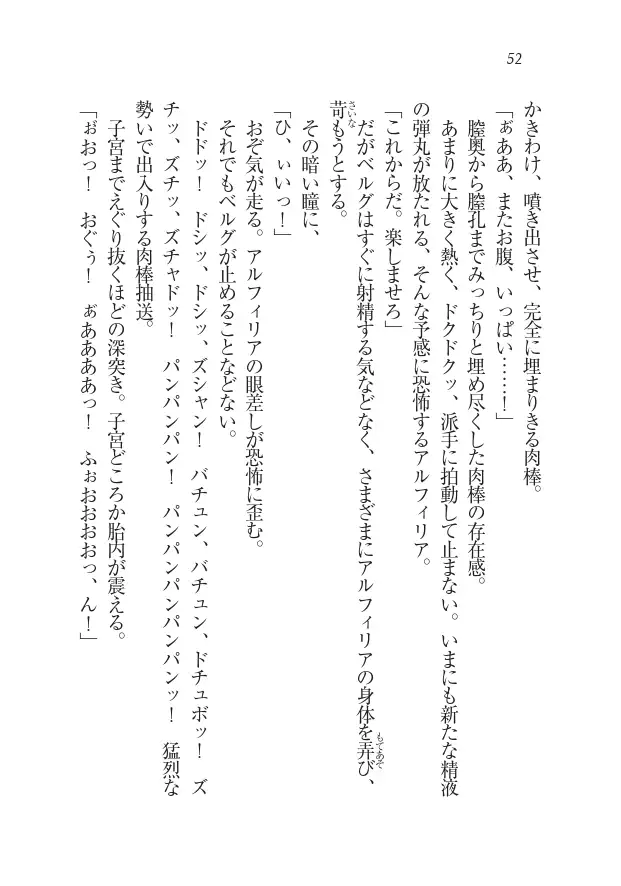 52
かきわけ、噴き出させ、完全に埋まりきる肉棒。
「ぁああ、またお腹、いっぱい……！」
膣奥から膣孔までみっちりと埋め尽くした肉棒の存在感。
あまりに大きく熱く、ドクドクッ、派手に拍動して止まない。いまにも新たな精液
の弾丸が放たれる、そんな予感に恐怖するアルフィリア。
「これからだ。楽しませろ」
だがベルグはすぐに射精する気などなく、さまざまにアルフィリアの身体を弄び、
苛もうとする。
その暗い瞳に、
「ひ、ぃいっ！」
おぞ気が走る。アルフィリアの眼差しが恐怖に歪む。
それでもベルグが止めることなどない。
ドドッ！　ドシッ、ドシッ、ズシャン！　バチュン、バチュン、ドチュボッ！　ズ
チッ、ズチッ、ズチャドッ！　パンパンパン！　パンパンパンパンパンッ！　猛烈な
勢いで出入りする肉棒抽送。
子宮までえぐり抜くほどの深突き。子宮どころか胎内が震える。
「ぉおっ！　おぐぅ！　ぁあああああっ！　ふぉおおおおっ、ん！」